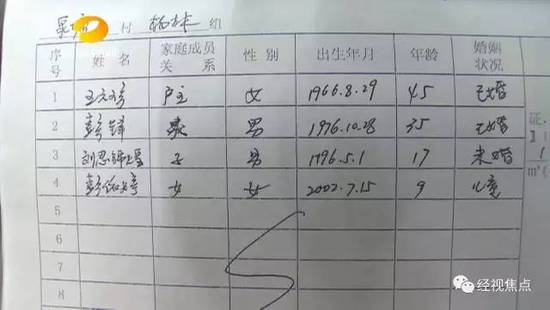 村 组
序号 姓名 家庭成员关系 性别 出生年月 年龄 婚姻状况
1 户主 女 1966.8.29 45 已婚
2 彭锋 男 1976.10.28 35 已婚
3 子 男 1996.5.1 17 未婚
4 女 女 2002.7.15 9 儿童
5
6
7
8
证
m²
经视焦点